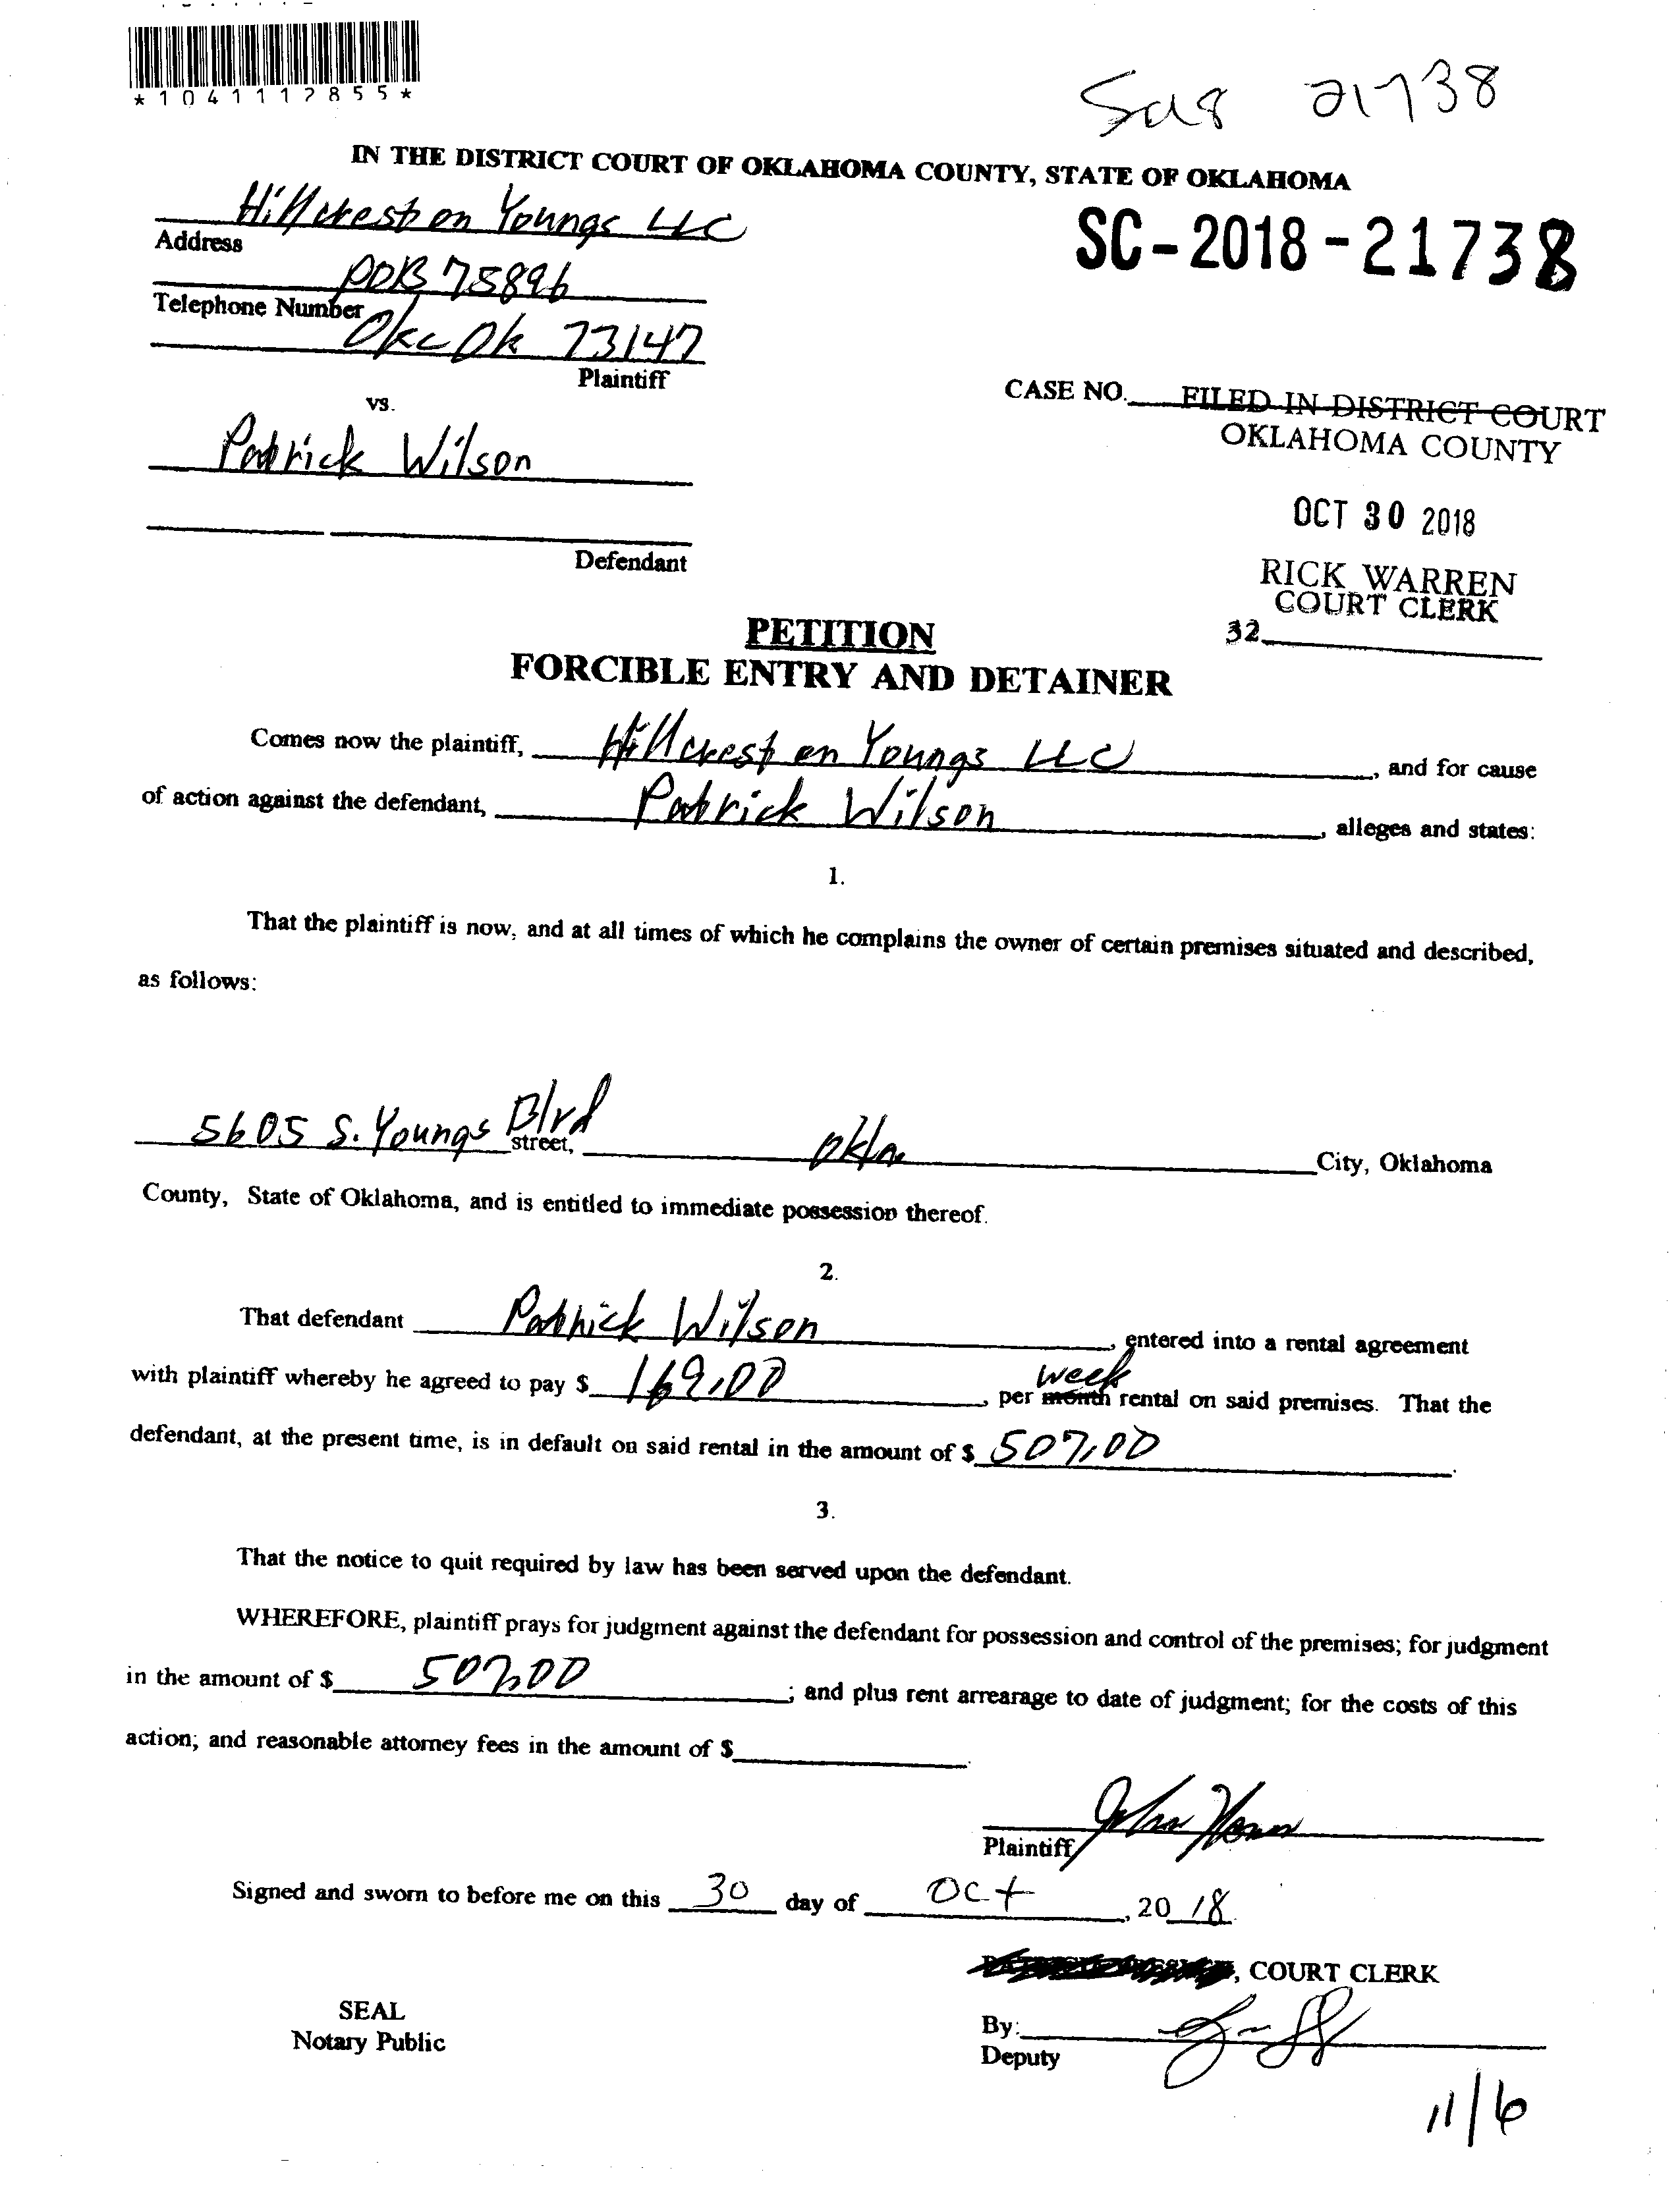 *1041112855*
Sc18 21738
IN THE DISTRICT COURT OF OKLAHOMA COUNTY, STATE OF OKLAHOMA
Hillcrest on Youngs LLC
SC-2018-21738
Address
POB 75896
Telephone Number
Okc Ok 73147
Plaintiff
CASE NO. FILED IN DISTRICT COURT
OKLAHOMA COUNTY
vs.
Patrick Wilson
OCT 30 2018
Defendant
RICK WARREN
COURT CLERK
32
PETITION
FORCIBLE ENTRY AND DETAINER
Comes now the plaintiff, Hillcrest on Youngs LLC, and for cause
of action against the defendant, Patrick Wilson, alleges and states:
1.
That the plaintiff is now, and at all times of which he complains the owner of certain premises situated and described,
as follows:
5605 S. Youngs Blvd street, Okla City, Oklahoma
County, State of Oklahoma, and is entitled to immediate possession thereof.
2.
That defendant Patrick Wilson, entered into a rental agreement
with plaintiff whereby he agreed to pay $ 169.00, per month week rental on said premises. That the
defendant, at the present time, is in default on said rental in the amount of $ 507.00.
3.
That the notice to quit required by law has been served upon the defendant.
WHEREFORE, plaintiff prays for judgment against the defendant for possession and control of the premises; for judgment
in the amount of $ 507.00; and plus rent arrearage to date of judgment; for the costs of this
action; and reasonable attorney fees in the amount of $.
Plaintiff
Signed and sworn to before me on this 30 day of Oct, 20 18.
, COURT CLERK
SEAL
Notary Public
By:
Deputy
11/6